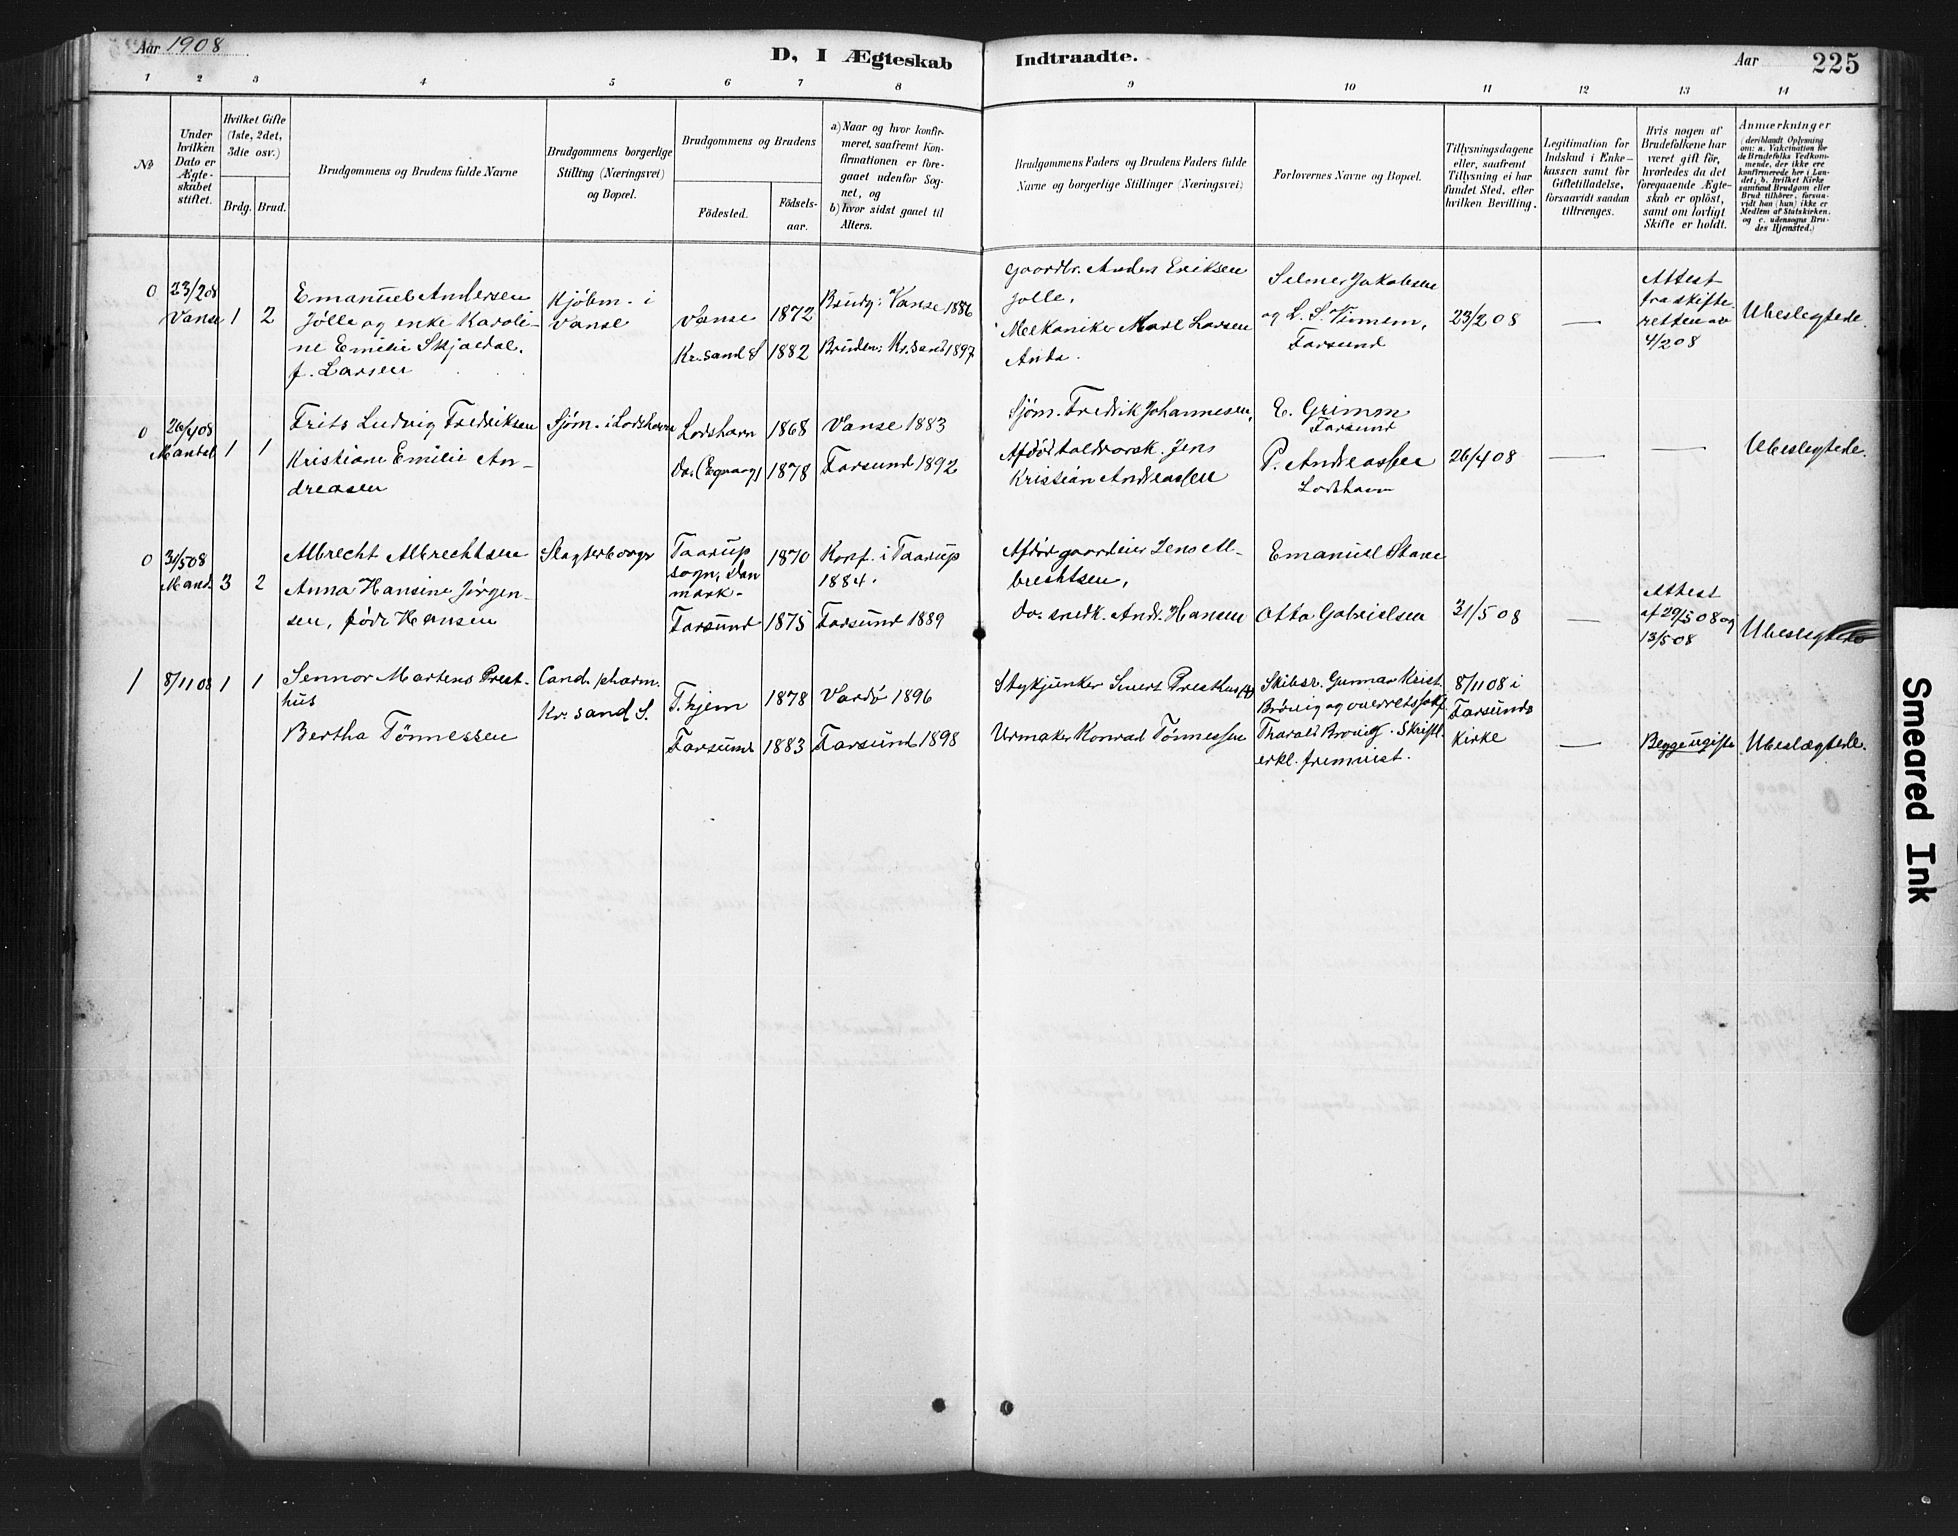 Aar 1908
D, I Ægteskab Indtraadte.
Aar 225
1 2 3 4 5 6 7 8 9 10 11 12 13 14
No
Under hvilken Dato er Ægteskabet stiftet.
Hvilket Gifte (1ste, 2det, 3die osv.)
Brdg. Brud.
Brudgommens og Brudens fulde Navne
Brudgommens borgerlige Stilling (Næringsvei) og Bopæl.
Brudgommens og Brudens
Födested.
Födsels-aar.
a) Naar og hvor konfirmeret, saafremt Konfirmationen er foregaaet udenfor Sognet, og
b) hvor sidst gaaet til Alters.
Brudgommens Faders og Brudens Faders fulde Navne og borgerlige Stillinger (Næringsvei)
Forlovernes Navne og Bopæl.
Tillysningsdagene eller, saafremt Tillysning ei har fundet Sted, efter hvilken Bevilling.
Legitimation for Indskud i Enkekassen samt for Giftetilladelse, forsaavidt saadan tiltrænges.
Hvis nogen af Brudefolkene har været gift för, hvorledes da det foregaaende Ægteskab er oplöst, samt om lovligt Skifte er holdt.
Anmærkninger
(deriblandt Oplysning om: a. Vakcination for de Brudefolks Vedkommende, der ikke ere konfirmerede her i Landet; b. hvilket Kirkesamfund Brudgom eller Brud tilhörer, forsaavidt han (hun) ikke er Medlem af Statskirken, og c. udensogns Brudes Hjemsted.)
0 23/208 Vanse 1 2
Emanuel Andersen
Jølle og enke Karoli-
ne Emilie Skjoldal,
f. Larsen
Kjöbm. i
Vanse
Vanse 1872 Brudg: Vanse 1886
Kr.sand S 1882 Bruden: Kr.sand 1897
Gaardbr. Anders Eriksen
Jølle,
Mekanike Karl Larsen
Selmer Jakobsen
og L. S.
Farsund
23/2 08 —
Attest
fra skifte-
retten av
4/2 08
Ubeslegtede.
0 26/408 Mandal 1 1
Frits Ludvig Fredriksen
Kristiane Emilie An-
dreasen
Sjöm. i Lodshavn
Lodshavn 1868 Vanse 1883
do. 1878 Farsund 1892
Sjöm. Fredrik Johannesen,
Afdöd toldvorsk. Jens
Kristian Andreassen
E. Grimm
Farsund
P. Andreassen
Lodshavn
26/4 08 — —
Ubeslegtede.
0 31/508 Mand. 3 2
Albrecht Albrechtsen
Anna Hansine Jörgen-
sen, födt Hansen
Slagterborgr
Taarup
sogn, Dan
mark-
1870 Konf. i Taarup
1884.
Farsund 1875 Farsund 1889
Afdöd gaardeier Jens Al-
brechtsen,
do. snedk. Andr. Hansen
Emanuel Stave
Otto Gabrielsen
31/5 08 —
Attest
af 29/5 08 og
13/5 08
Ubeslegtede
1 8/11 08 1 1
Sennor Martens Prest-
hus
Bertha Tönnessen
Cand. pharm.
Kr.sand S.
T.hjem 1878 Vardö 1896
Farsund 1883 Farsund 1898
Stykjunker Presthus
Urmaker Konrad Tönnessen
Skibsr. Gunnar Krist.
Brövig og overretssakf.
Tharald Brövig. Skriftl.
erkl. fremvist.
8/11 08 i
Farsunds
Kirke
—
Begge ugifte
Ubeslægtede.
Smeared Ink